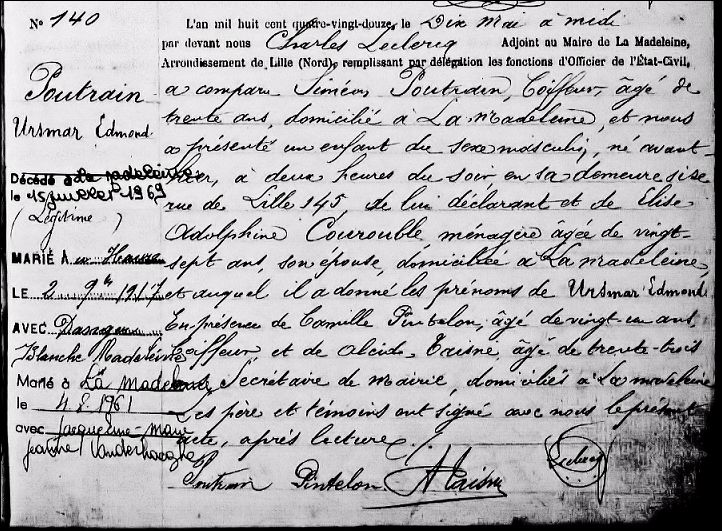 N° 140
Poutrain
Ursmar Edmond
Décédé à La Madeleine
le 15 juillet 1969
(Légitime)
MARIÉ À
LE 2 9bre 1917
AVEC
Blanche Madeleine
Marié à La Madeleine
le 4.8.1961
avec Jacqueline-Marie
Jeanne Vanderhaeghe
L'an mil huit cent quatre-vingt-douze, le Dix Mai à midi
par devant nous Charles Leclercq Adjoint au Maire de La Madeleine,
Arrondissement de Lille (Nord), remplissant par délégation les fonctions d'Officier de l'État-Civil,
a comparu Siméon Poutrain, Coiffeur, âgé de
trente ans, domicilié à La Madeleine, et nous
a présenté un enfant du sexe masculin, né avant-
hier, à deux heures du soir en sa demeure sise
rue de Lille 145, de lui déclarant et de Elise
Adolphine Courouble, ménagère âgée de vingt-
sept ans, son épouse, domiciliée à La Madeleine,
et auquel il a donné les prénoms de Ursmar Edmond
En présence de Camille Pintelon, âgé de vingt-un ans,
Coiffeur, et de Alcide Taisne, âgé de trente-trois
Secrétaire de Mairie, domiciliés à La Madeleine
Les père et témoins ont signé avec nous le présent
acte, après lecture.
Poutrain Pintelon A Taisne Leclercq